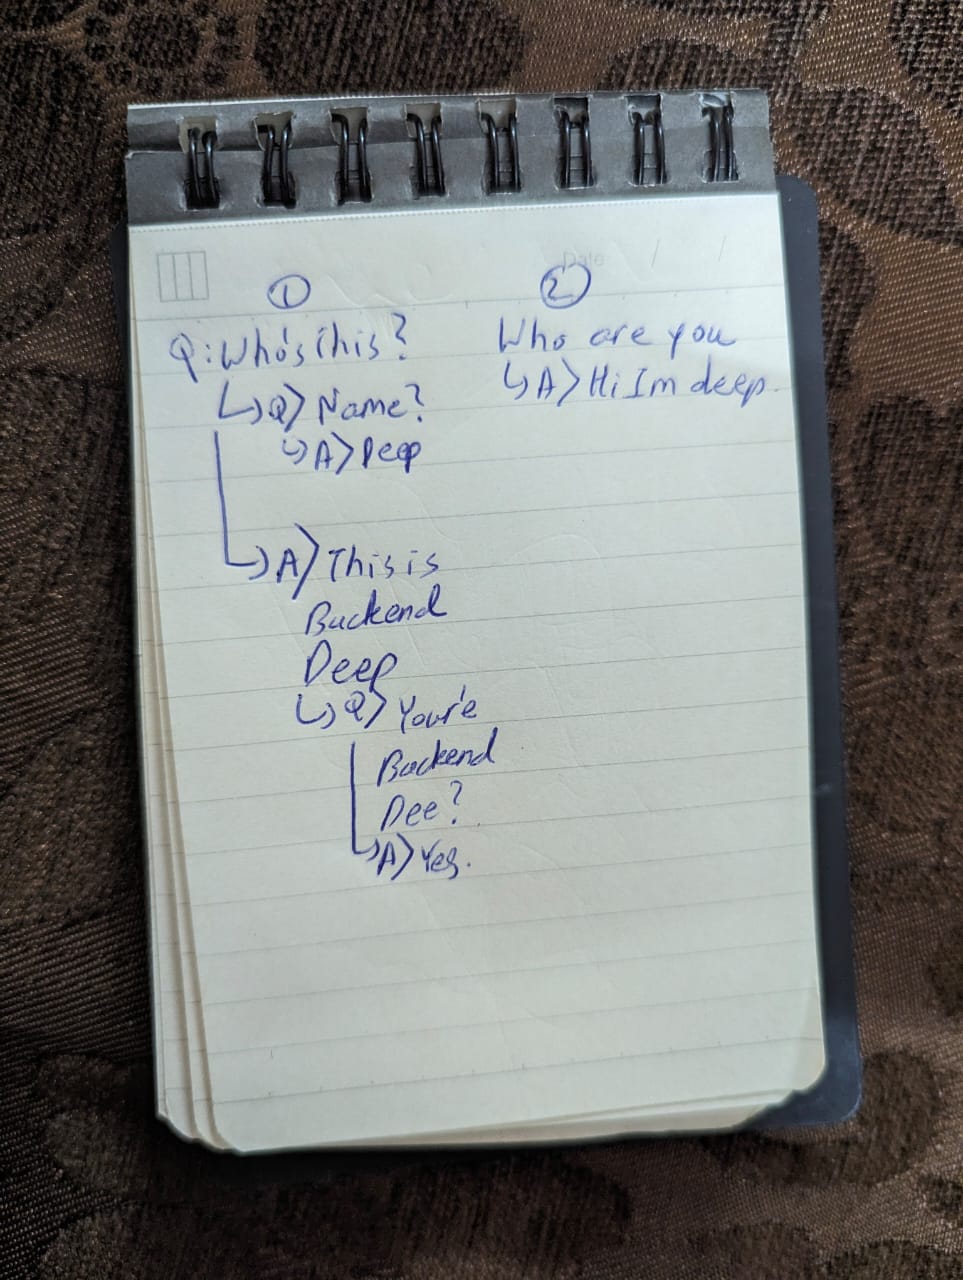 Date / /
① ②
Q: Who's this?
↳ Q> Name?
↳ A> Deep
↳ A> This is
Backend
Deep
↳ Q> Your'e
Backend
Dee?
↳ A> Yes.
Who are you
↳ A> Hi Im deep.